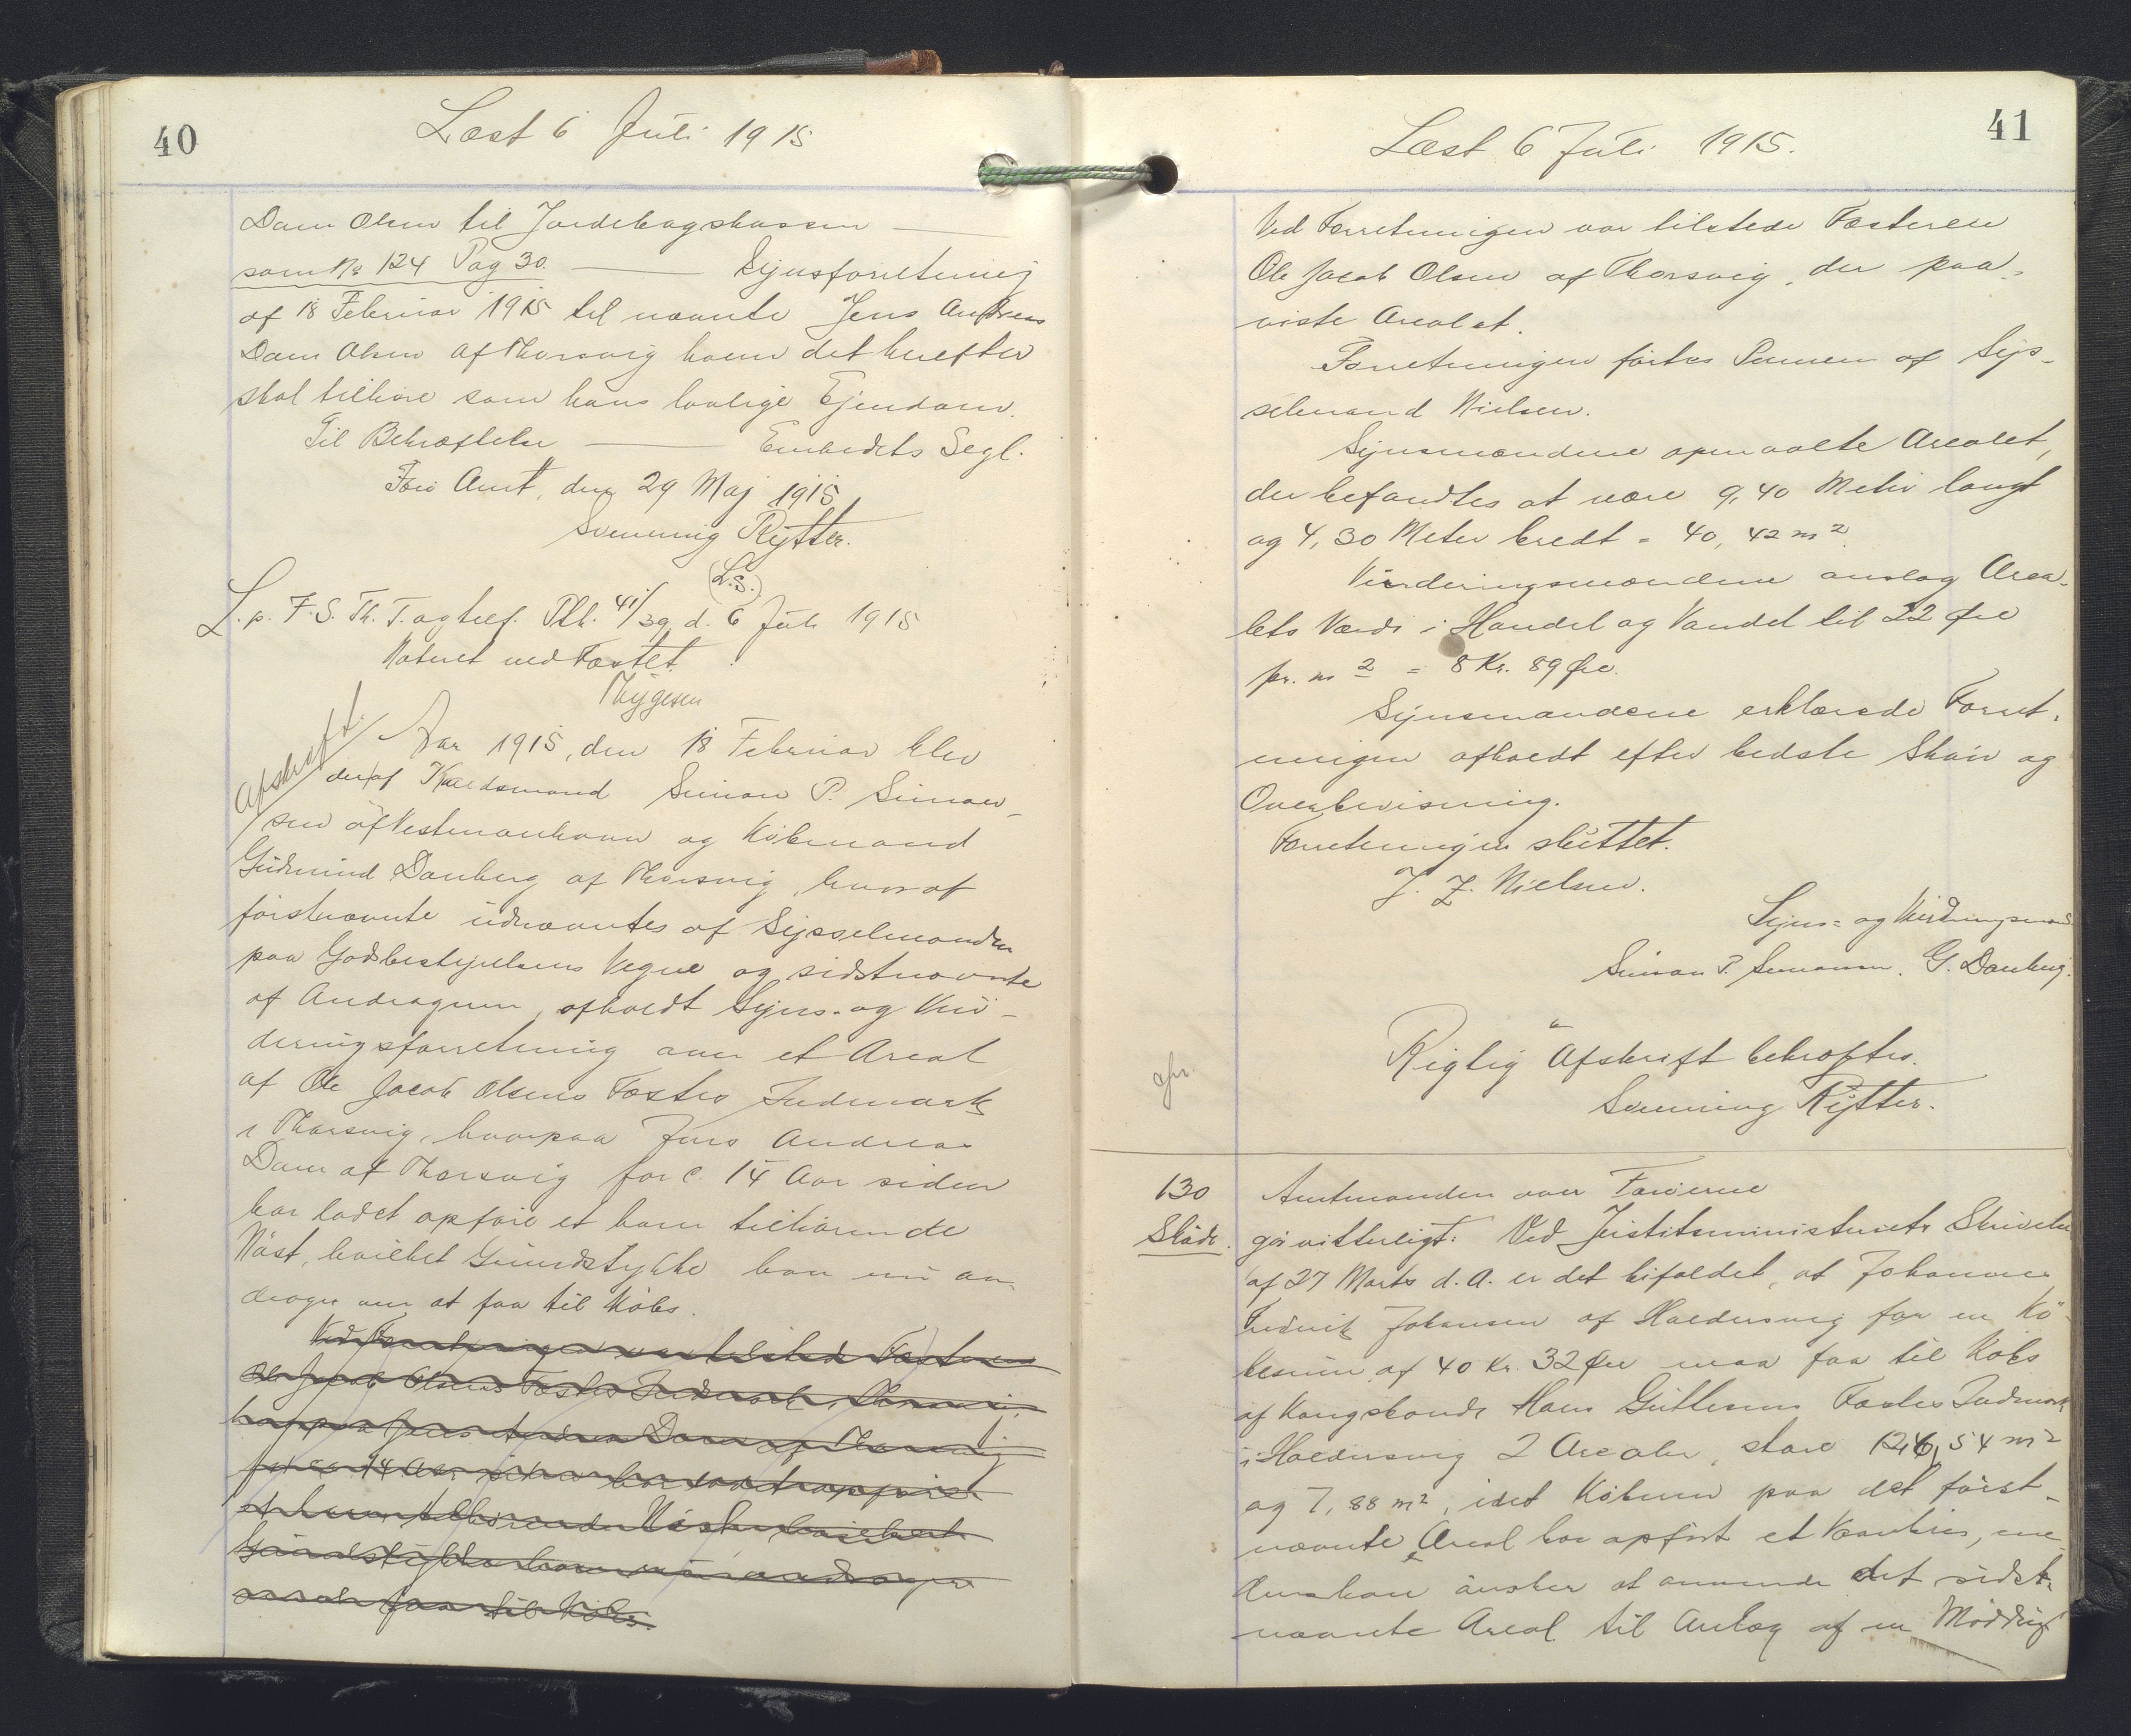 40
Læst 6 Juli 1915
Dam Olsen til Jordebogskassen —
som No 124 Pag 30. — Synsforretning
af 18 Februar 1915 til nævnte Jens Andreas
Dam Olsen af Thorsvig hvem det herefter
skal tilhøre som hans lovlige Ejendom.
Til Bekræftelse — Embedets Segl.
Færø Amt, den 29 Maj 1915
Svenning Rytter.
(L.S.)
L. p. F. S. Th. T. og tilf. Ptk. 41/39 d. 6 Juli 1915
Noteret ved Fæstet.
Thygesen
Afskrift.
Aar 1915, den 18 Februar blev
der af Kaldsmand Simon P. Simon-
sen af Vestmanhavn og Købmand
Gudmund Danberg af Thorsvig, hvoraf
førstnævnte udnævntes af Sysselmanden
paa Godsbestyrelsens Vegne og sidstnævnte
af Andrageren, afholdt Syns- og Vur-
deringsforretning over et Areal
af Ole Jacob Olsens Fæstes Indmark
i Thorsvig, hvorpaa Jens Andreas
Dam af Thorsvig for c. 14 Aar siden
har ladet opføre et ham tilhørende
Nøst, hvilket Grundstykke han nu an-
drager om at faa til Købs.
Ved Forretningen var tilstede Fæsteren
Ole Jacob Olsens Fæstes Indmark i Thorsvig,
hvorpaa Jens Andreas Dam af Thorsvig
for ca. 14 Aar siden har ladet opføre
et ham tilhørende Nøst, hvilket
Grundstykke han nu andrager
om at faa til Købs.
41
Læst 6 Juli 1915.
Ved Forretningen var tilstede Fæsteren
Ole Jacob Olsen af Thorsvig, der paa-
viste Arealet.
Forretningen førtes Pennen af Sys-
selmand Nielsen.
Synsmændene opmaalte Arealet,
der befandtes at være 9,40 Meter langt
og 4,30 Meter bredt = 40,42 m2
Vurderingsmændene anslog Area-
lets Værdi i Handel og Vandel til 22 Øre
pr. m2 = 8 Kr. 89 Øre.
Synsmændene erklærede Forret-
ningen afholdt efter bedste Skøn og
Overbevisning.
Forretningen sluttet.
J. Z. Nielsen.
Syns- og Vurderingsmænd
Simon P. Simonsen. G. Danberg.
Rigtig Afskrift bekræftes.
Svenning Rytter.
130
Slådr.
Amtmanden over Færøerne
gør vitterligt: Ved Justitsministeriets Skrivelse
af 27 Marts d. A. er det bifaldet, at Johannes
Fredrik Johansen af Haldersvig for en Kø-
besum af 40 Kr. 32 Øre maa faa til Købs
af Kongsbonde Hans Guttesens Fæstes Indmark
i Haldersvig 2 Arealer, store 126,54 m2
og 7,88 m2, idet Køberen paa det først-
nævnte Areal har opført et Vaanhus, me-
dens han ønsker at anvende det sidst-
nævnte Areal til Anlæg af en Mødding